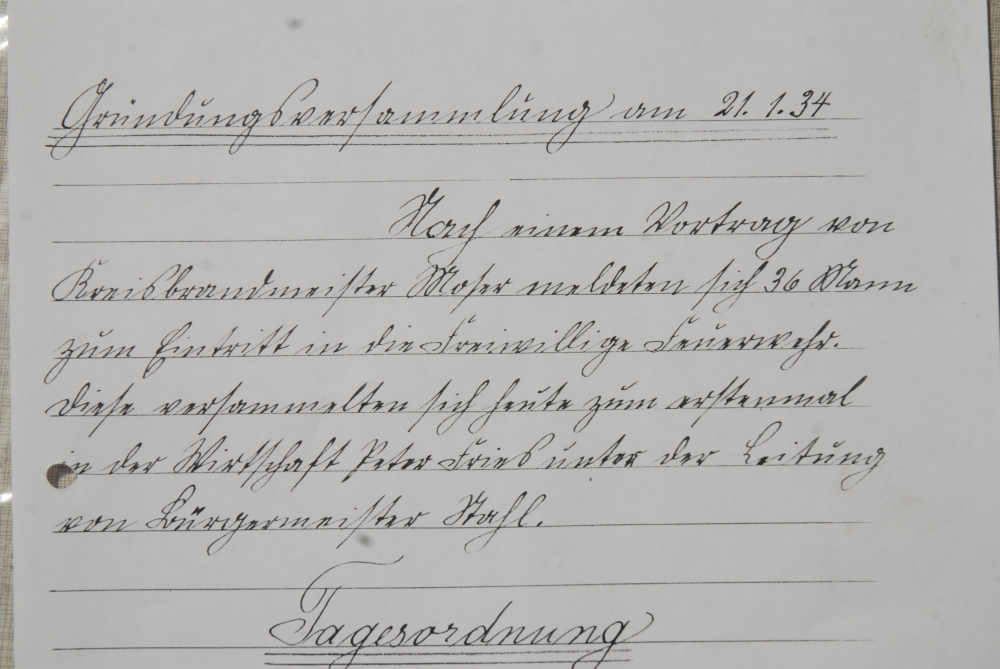 Gründungsversammlung am 21.1.34
Nach einem Vortrag von
Kreisbrandmeister Moser meldeten sich 36 Mann
zum Eintritt in die Freiwillige Feuerwehr.
Diese versammelten sich heute zum erstenmal
in der Wirtschaft Peter Fries unter der Leitung
von Bürgermeister Stahl.
Tagesordnung